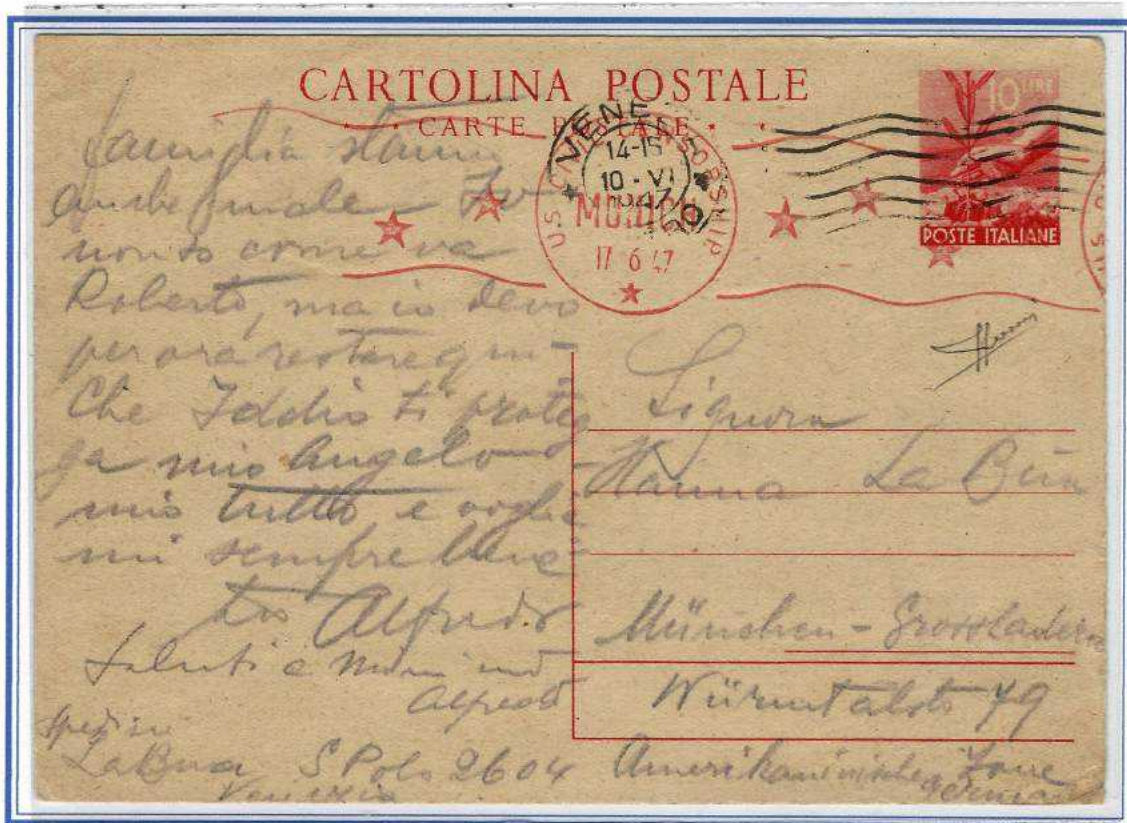 CARTOLINA POSTALE
CARTE POSTALE
10 LIRE
POSTE ITALIANE
VENEZIA
14-15
10-VI
1947
U.S. CIVIL CENSORSHIP
MUNICH
17 6 47
famiglia stanno
anche
non so come va
Roberto, ma io devo
per ora restare qui -
Che Iddio ti proteg
ga mio Angelo
mio tutto, e voglia
mi sempre bene
tuo Alfredo
Saluti a
Alfredo
La Bua S Polo 2604
Venezia
Signora
Hanna La Bua
München - Grosshadern
Würmtalstr 79
Amerikanische Zone